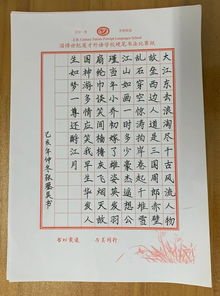 淄博世纪英才外语学校硬笔书法比赛纸
大江东去浪淘尽千古风流人物
故垒西边人道是三国周郎赤壁
乱石穿空惊涛拍岸卷起千堆雪
江山如画一时多少豪杰遥想公
瑾当年小乔初嫁了雄姿英发羽
扇纶巾谈笑间樯橹灰飞烟灭故
国神游多情应笑我早生华发人
生如梦一尊还酹江月
己亥年仲冬张书
书以载道 与美同行